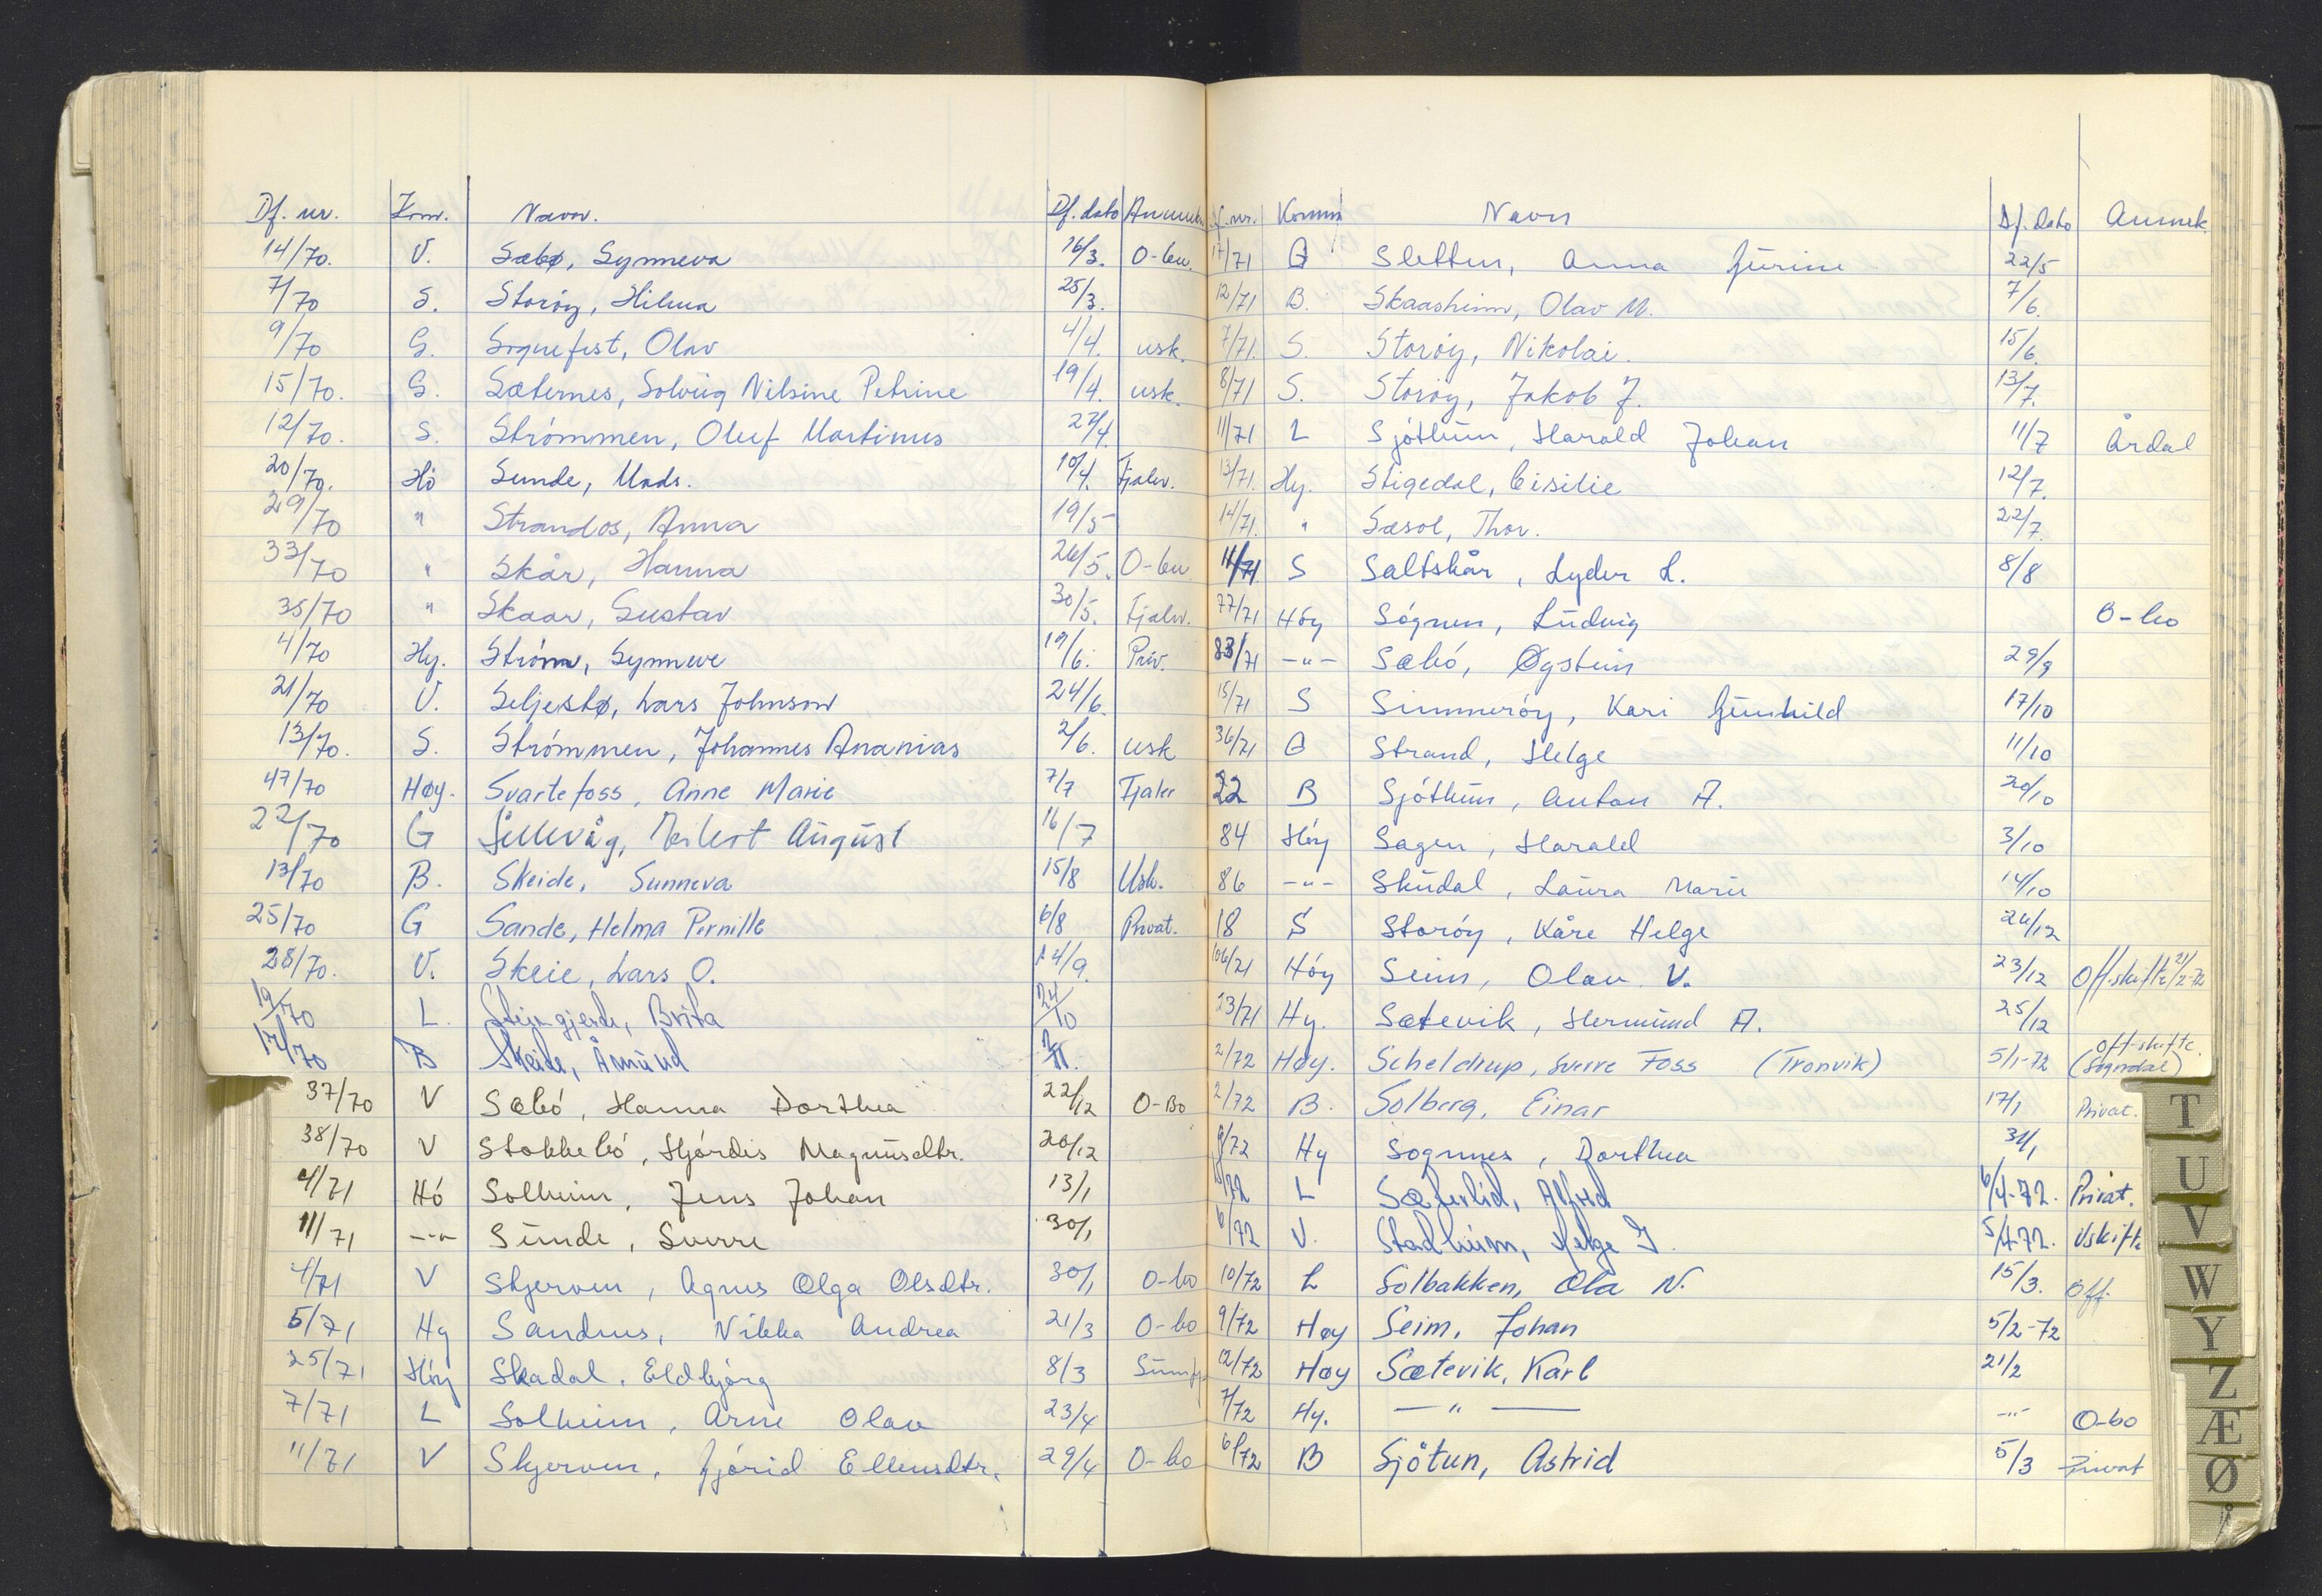 Df. nr. Kom. Navn. Df. dato Anmerk.
14/70. V. Sæbø, Synneva 16/3. O-bu.
7/70 S. Storøy, Hilma 25/3.
9/70 G. Sognefest, Olav 4/4. usk.
15/70. G. Sæternes, Solveig Nilsine Petrine 19/4. usk.
12/70. S. Strómmen, Oluf Martinus 27/4.
20/70. Hö Sunde, Mads. 10/4. Fjaler.
29/70 " Strandos, Anna 19/5
33/70 " Skår, Hanna 26/5. O-bu
35/70 " Skaar, Gustav 30/5. Fjaler.
4/70 Hy. Stróm, Synneve 19/6. Priv.
21/70 V. Seljestø, Lars Johnson 24/6.
13/70. S. Strómmen, Johannes Ananias 2/6. usk
47/70 Høy. Svartefoss, Anne Marie 7/7 Fjaler
22/70 G August 16/7
13/70 B. Skeide, Sunneva 15/8 Usk.
25/70 G Sande, Helma Pernille 6/8 Privat.
28/70. V. Skeie, Lars O. 14/9.
19/70 L. Brita 24/10
17/70 B Skeide, Åmund
37/70 V Sæbó, Hanna Dorthea 22/12 O-Bo
38/70 V Stokkebó, Hjórdis Magnusdtr. 20/12
4/71 Hó Solheim, Jens Johan 13/1
11/71 -"- Sunde, Sverre 30/1
4/71 V Skjerven, Agnes Olga Olsdtr. 30/1 O-bo
5/71 Hy Sandnes, Nikka Andrea 21/3 O-bo
25/71 Hóy Skadal, Eldbjórg 8/3
7/71 L Solheim, Arne Olav 23/4
11/71 V Skjerven, Gjórid Ellensdtr. 29/4 O-bo
f.nr. Komm Navn Df. dato Anmek.
17/71 G Sletten, Anna Gurine 22/5
12/71 B. Skaasheim, Olav M. 7/6.
7/71. S. Storøy, Nikolai. 15/6.
8/71 S. Storøy, Jakob J. 13/7.
11/71 L Sjóthun, Harald Johan 11/7 Årdal
13/71. Hy. Stigedal, Cisilie 12/7.
14/71. " Sæsol, Thor. 22/7.
11/71 S Saltskår, Lyder L. 8/8
77/71 Hóy Sógnen, Ludvig O-bo
83/71 -"- Sæbó, Øystein 29/9
15/71 S Simmeróy, Kari Gunhild 17/10
36/71 G Strand, Helge 11/10
22 B Sjóthun, Anton A. 20/10
84 Hóy Sagen, Harald 3/10
86 -"- Skudal, Laura Marie 14/10
18 S Storóy, Kåre Helge 26/12
106/71 Hóy Seim, Olav V. 23/12 Off.skifte 21/2-72
23/71 Hy. Sætevik, Hermund A. 25/12
2/72 Høy. Scheldrup, Sverre Foss (Tronvik) 5/1-72 Off-skifte. (Sogndal)
2/72 B. Solberg, Einar 17/1 Privat.
9/72 Hy Sognnes, Dorthea 31/1
/72 L Sæterlid, Alfred 6/4-72. Privat.
6/72 V. Stadheim, Helge J. 5/4-72. Uskifte
10/72 L Solbakken, Ola N. 15/3. Off.
9/72 Høy Seim, Johan 5/2-72
12/72 Høy Sætevik, Karl 21/2
7/72 Hy. — " — -"- O-bo
6/72 B Sjøtun, Astrid 5/3 Privat
T
U
V
W
Y
Z
Æ
Ø
Å